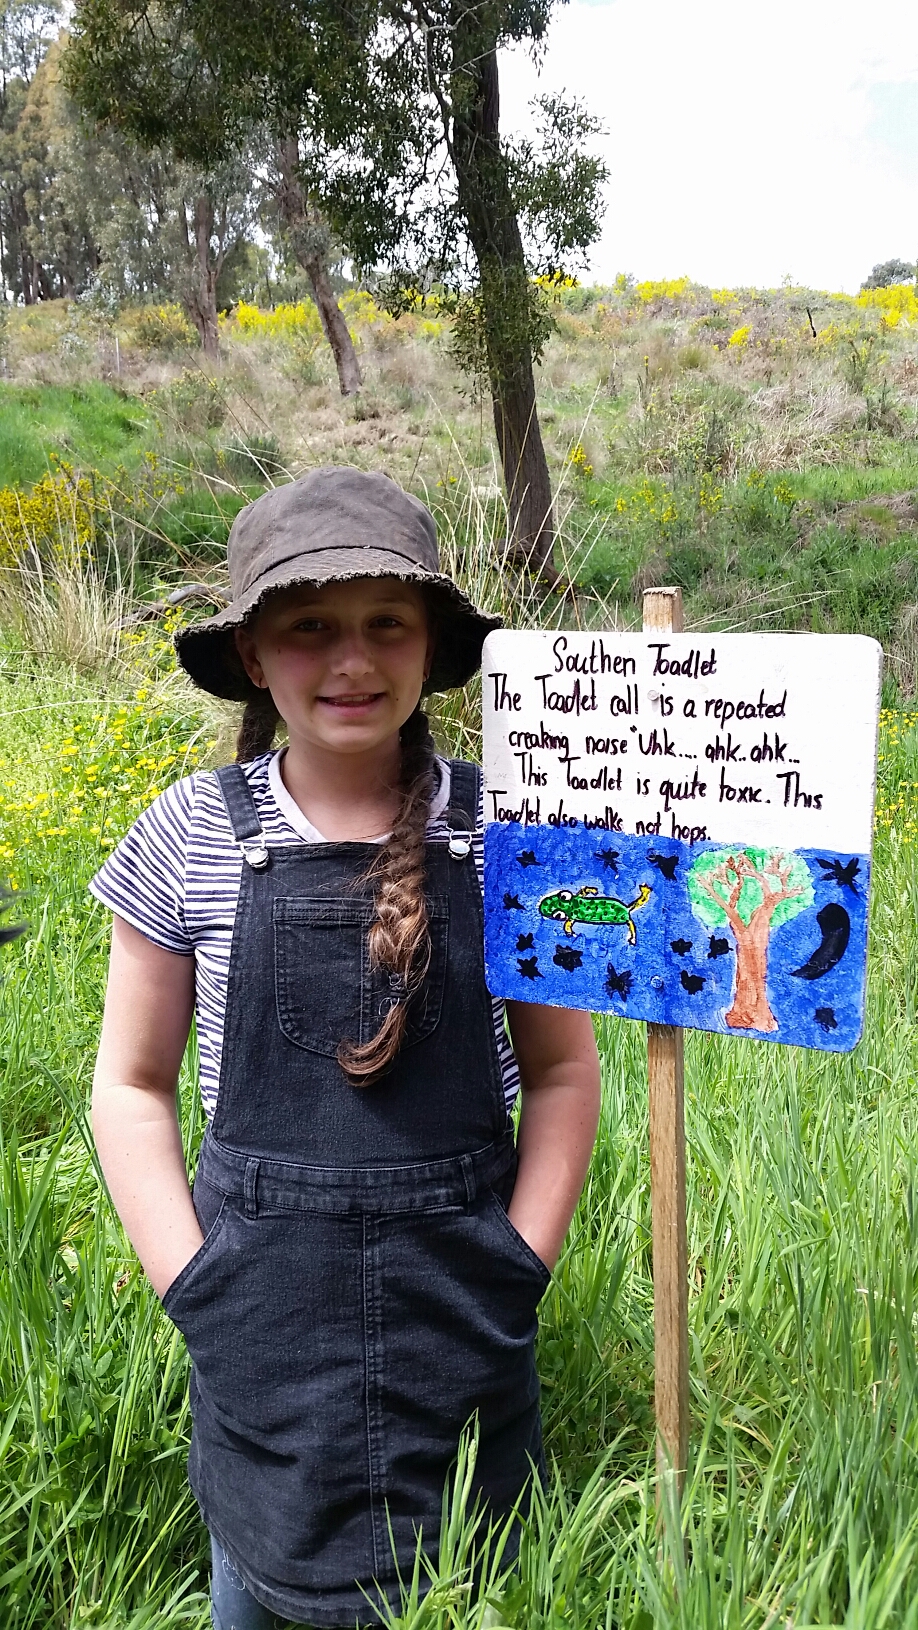 Southen Toadlet
The Toadlet call is a repeated
creaking noise "Uhk.... ahk.. ahk...
This Toadlet is quite toxic. This
Toadlet also walks not hops.